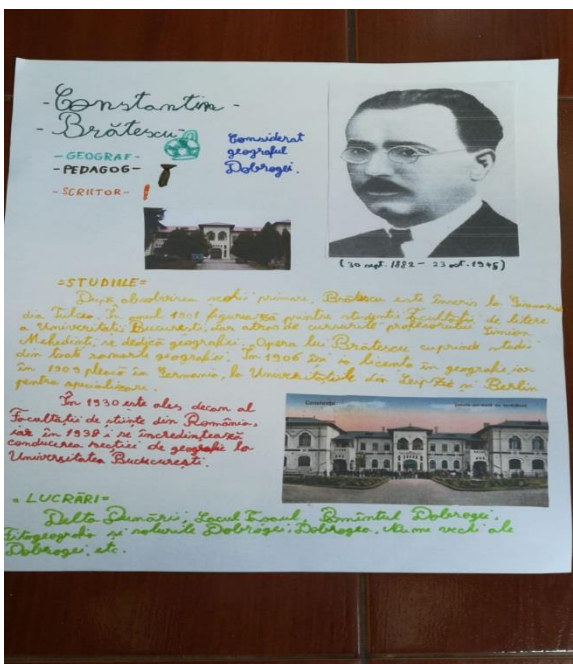 - Constantin -
- Brătescu -
- GEOGRAF -
- PEDAGOG -
- SCRIITOR -
Considerat
geograful
Dobrogei.
(30 sept. 1882 - 23 oct. 1945)
= STUDIILE =
După absolvirea școlii primare, Brătescu este înscris la
din Tulcea. În anul 1901 figurează printre studenții Facultății de litere
a Universității București, dar atras de cursurile profesorului Simion
Mehedinți, se dedică geografiei. Opera lui Brătescu cuprinde studii
din toate ramurile geografiei. În 1906 își ia licența în geografie, iar
în 1909 pleacă în Germania, la Universitățile din Leipzig și Berlin
pentru specializare.
În 1930 este ales decan al
Facultății de științe din România,
iar în 1938 i se încredințează
conducerea secției de geografie la
Universitatea București.
Constanța
= LUCRĂRI =
Delta Dunării, Lacul Pămîntul Dobrogei,
Fitogeografia și solurile Dobrogei, Dobrogea, Nume vechi ale
Dobrogei, etc.